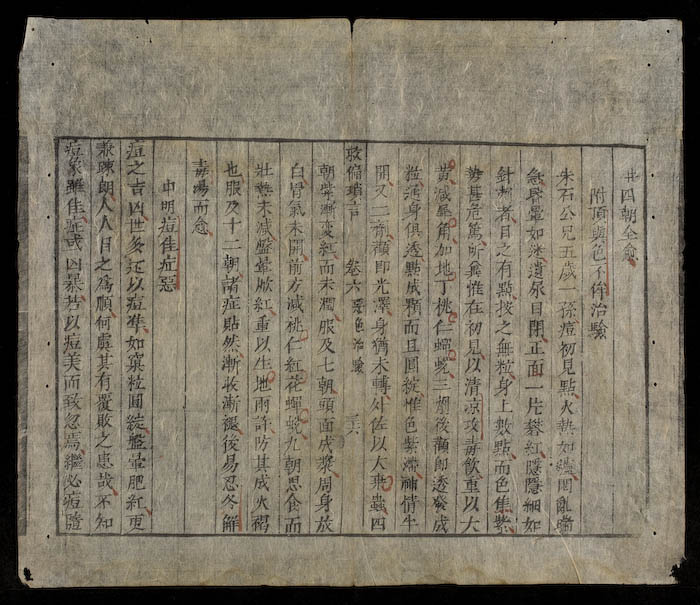 廿四朝全愈
附頂陷色不侔治驗
朱石公兄五歲一孫痘初見點火熱如
昏暈如迷遺尿目閉正面一片紅隱隱細如
針刺者目之有點按之無粒身上數點而色焦紫
甚危篤所幸惟在初見以清涼攻毒飲重以大
黃减犀角加地丁桃仁三劑後顱即透發成
粒通身俱透點成顆而且圓綻惟色紫滯神情半
開又二劑顱即光澤身猶未轉外佐以大桑蟲四
朝紫漸變紅而未潤服及七朝頭面成漿周身放
白胃氣未開前方减桃仁紅花蟬蛻九朝思食而
壯熱未减盤暈焮紅重以生地兩許防其成火褐
也服及十二朝諸症貼然漸收漸靨後易忍冬解
毒湯而愈
救偏瑣言 卷六 治驗
申明痘佳症惡
痘之吉凶世多以痘準如窠粒圓綻盤暈肥紅更
兼疎朗人人目之為順何慮其有覆敗之患哉不知
痘象雖佳症或凶暴若以痘美而致忽焉繼必痘隨